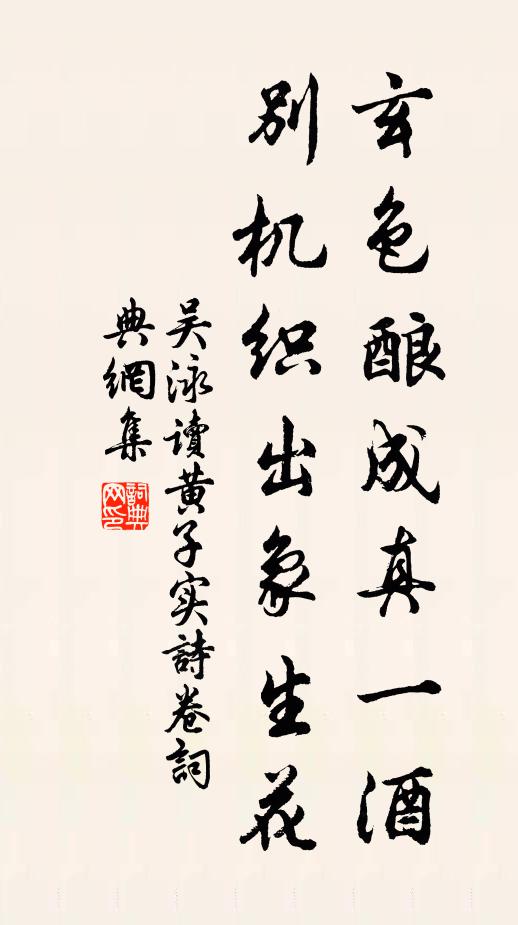 玄色酿成真一酒
别机织出象生花
吴泳读黄子实詩卷詞
典網集
詞典网印